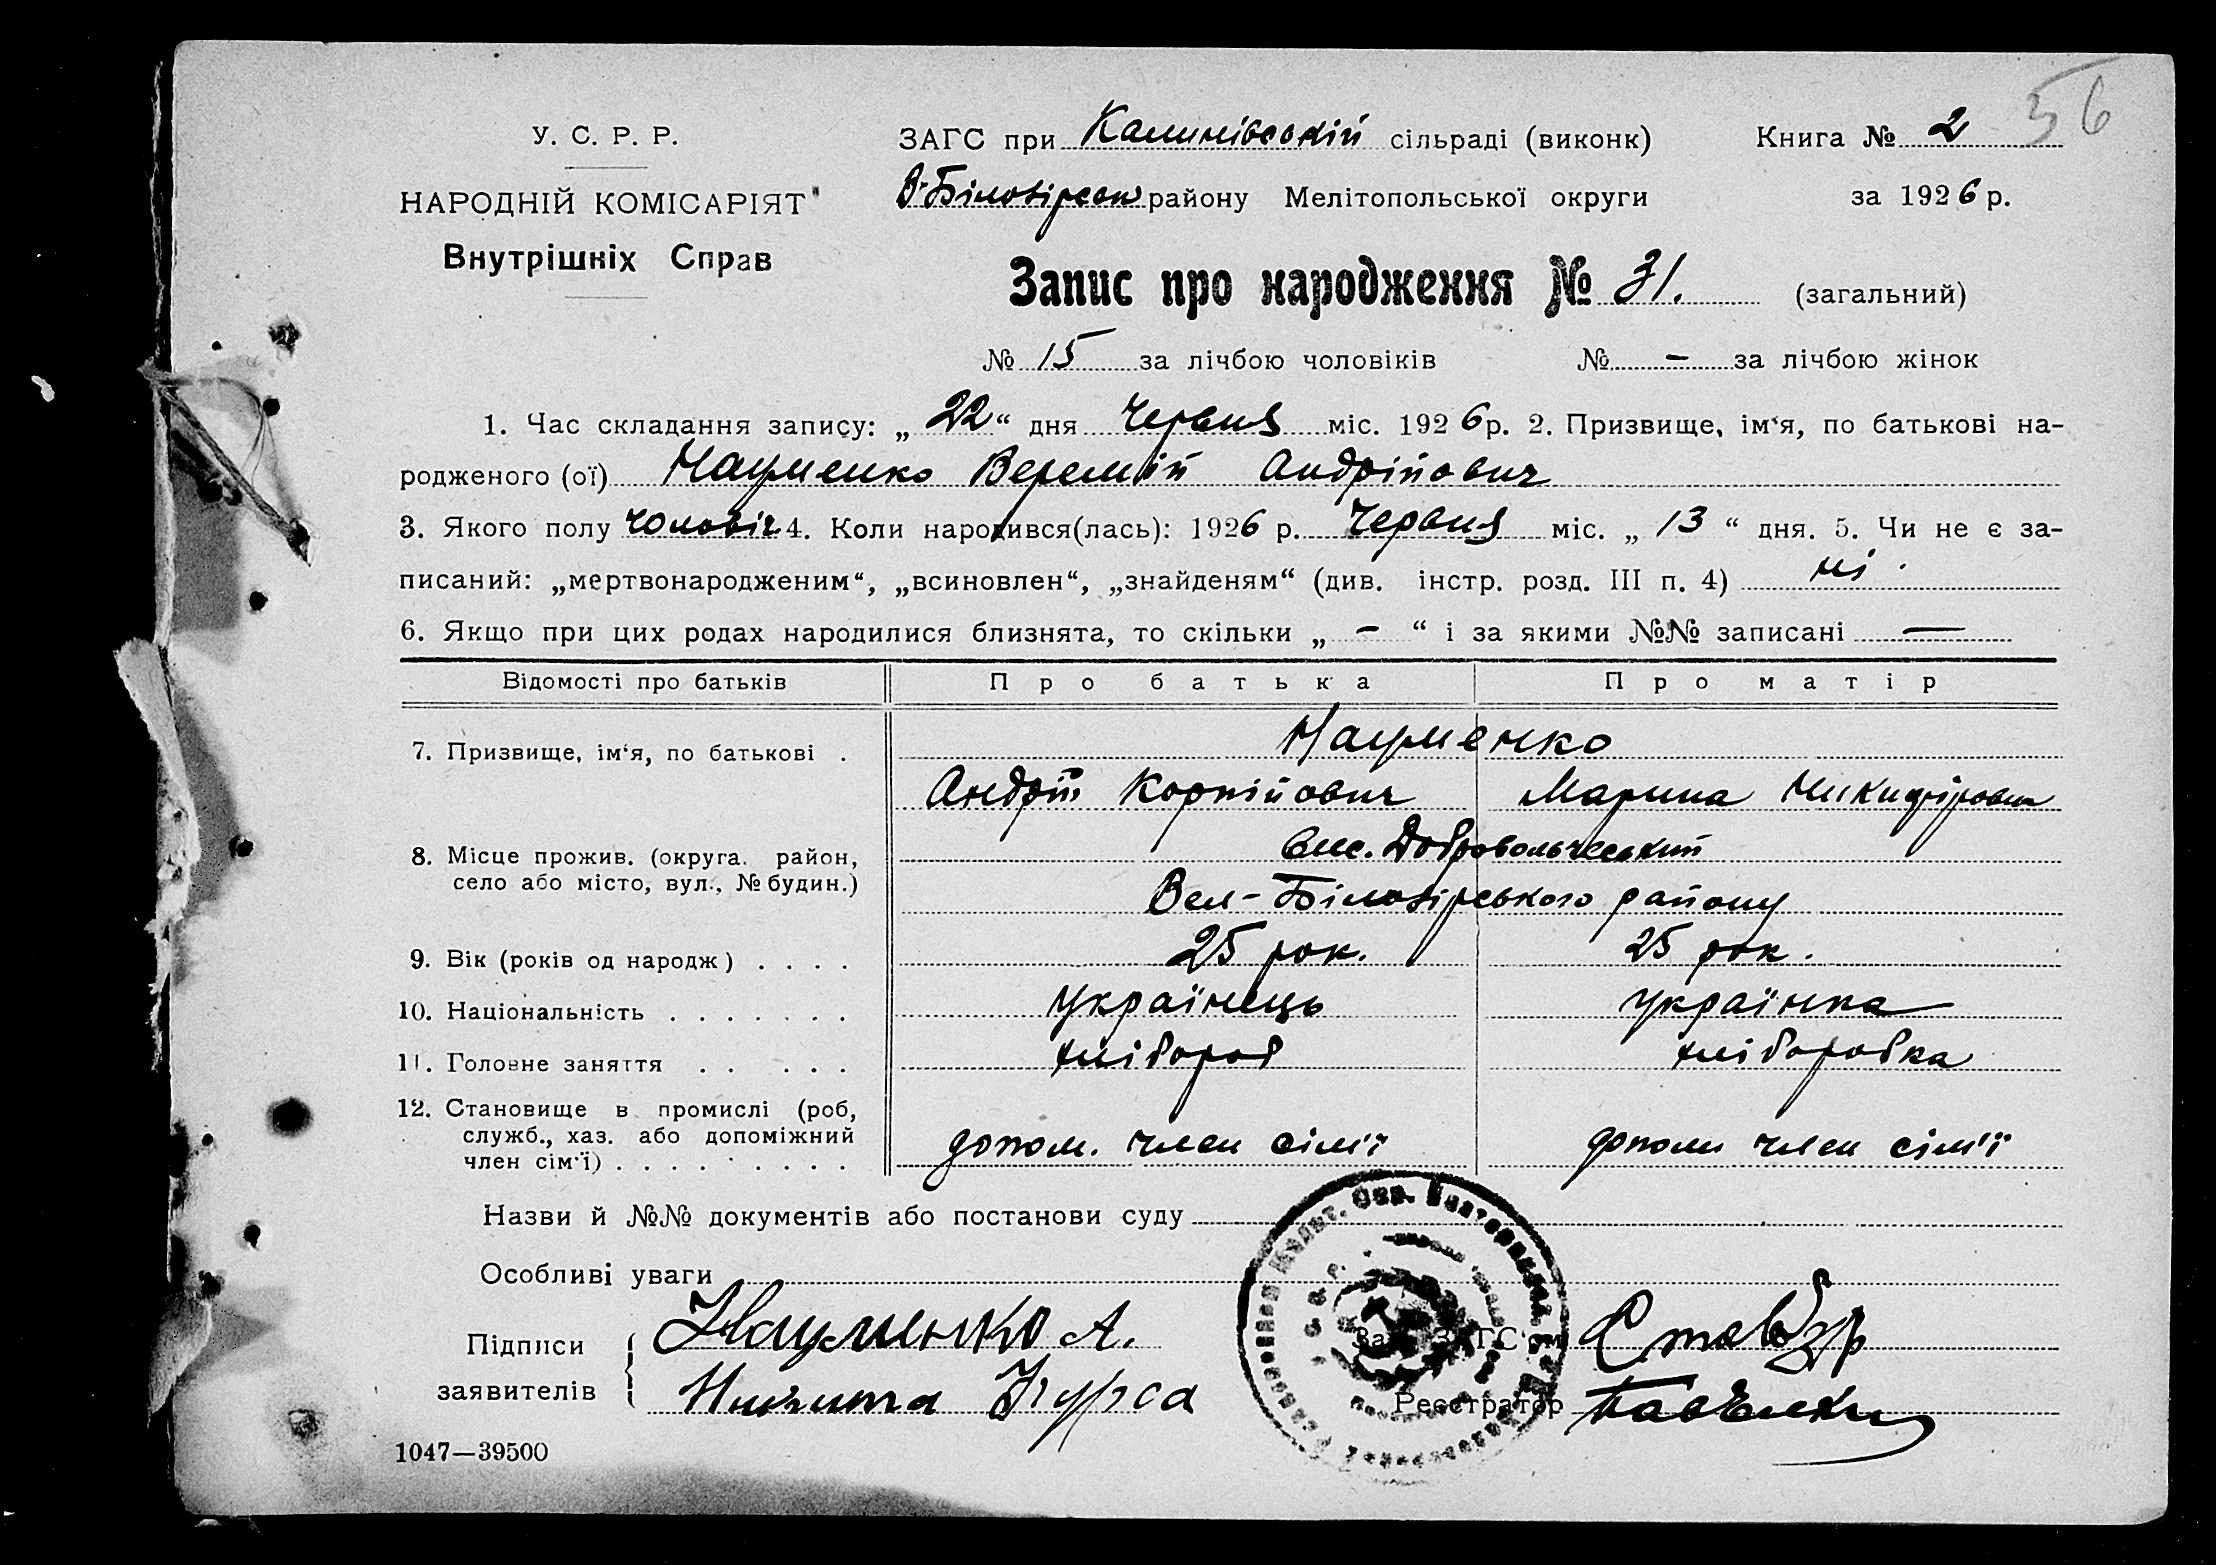 56
У. С. Р. Р.
НАРОДНІЙ КОМІСАРІЯТ
Внутрішніх Справ
ЗАГС при Калинівській сільраді (виконк)
В-Білозірськ району Мелітопольської округи
Книга № 2
за 1926 р.
Запис про народження № 31. (загальний)
№ 15 за лічбою чоловіків № — за лічбою жінок
1. Час складання запису: „22“ дня Червня міс. 1926 р. 2. Призвище, ім‘я, по батькові на-
родженого (ої) Науменко Веремій Андрійович
3. Якого полу чоловіч 4. Коли народився(лась): 1926 р. Червня міс. „13“ дня. 5. Чи не є за-
писаний: „мертвонародженим“, „всиновлен“, „знайденям“ (див. інстр. розд. III п. 4) ні.
6. Якщо при цих родах народилися близнята, то скільки „ — “ і за якими №№ записані —
Відомості про батьків Про батька Про матір
7. Призвище, ім‘я, по батькові . Науменко
Андрій Корнійович Марина Никифіровна
8. Місце прожив. (округа. район, село або місто, вул., № будин.) вис. Добровольчеський
Вел-Білозірського району
9. Вік (років од народж) . . . . 25 рок. 25 рок.
10. Національність . . . . . . . українець українка
11. Головне заняття . . . . . хлібороб хліборобка
12. Становище в промислі (роб, служб., хаз. або допоміжний член сім'ї) . . . . . . . . . допом. член сімї допом член сім'ї
Назви й №№ документів або постанови суду
Особливі уваги
Підписи Науменко А.
заявителів Никита Курса
Зав. ЗАГС'ом
Реєстратор
1047—39500